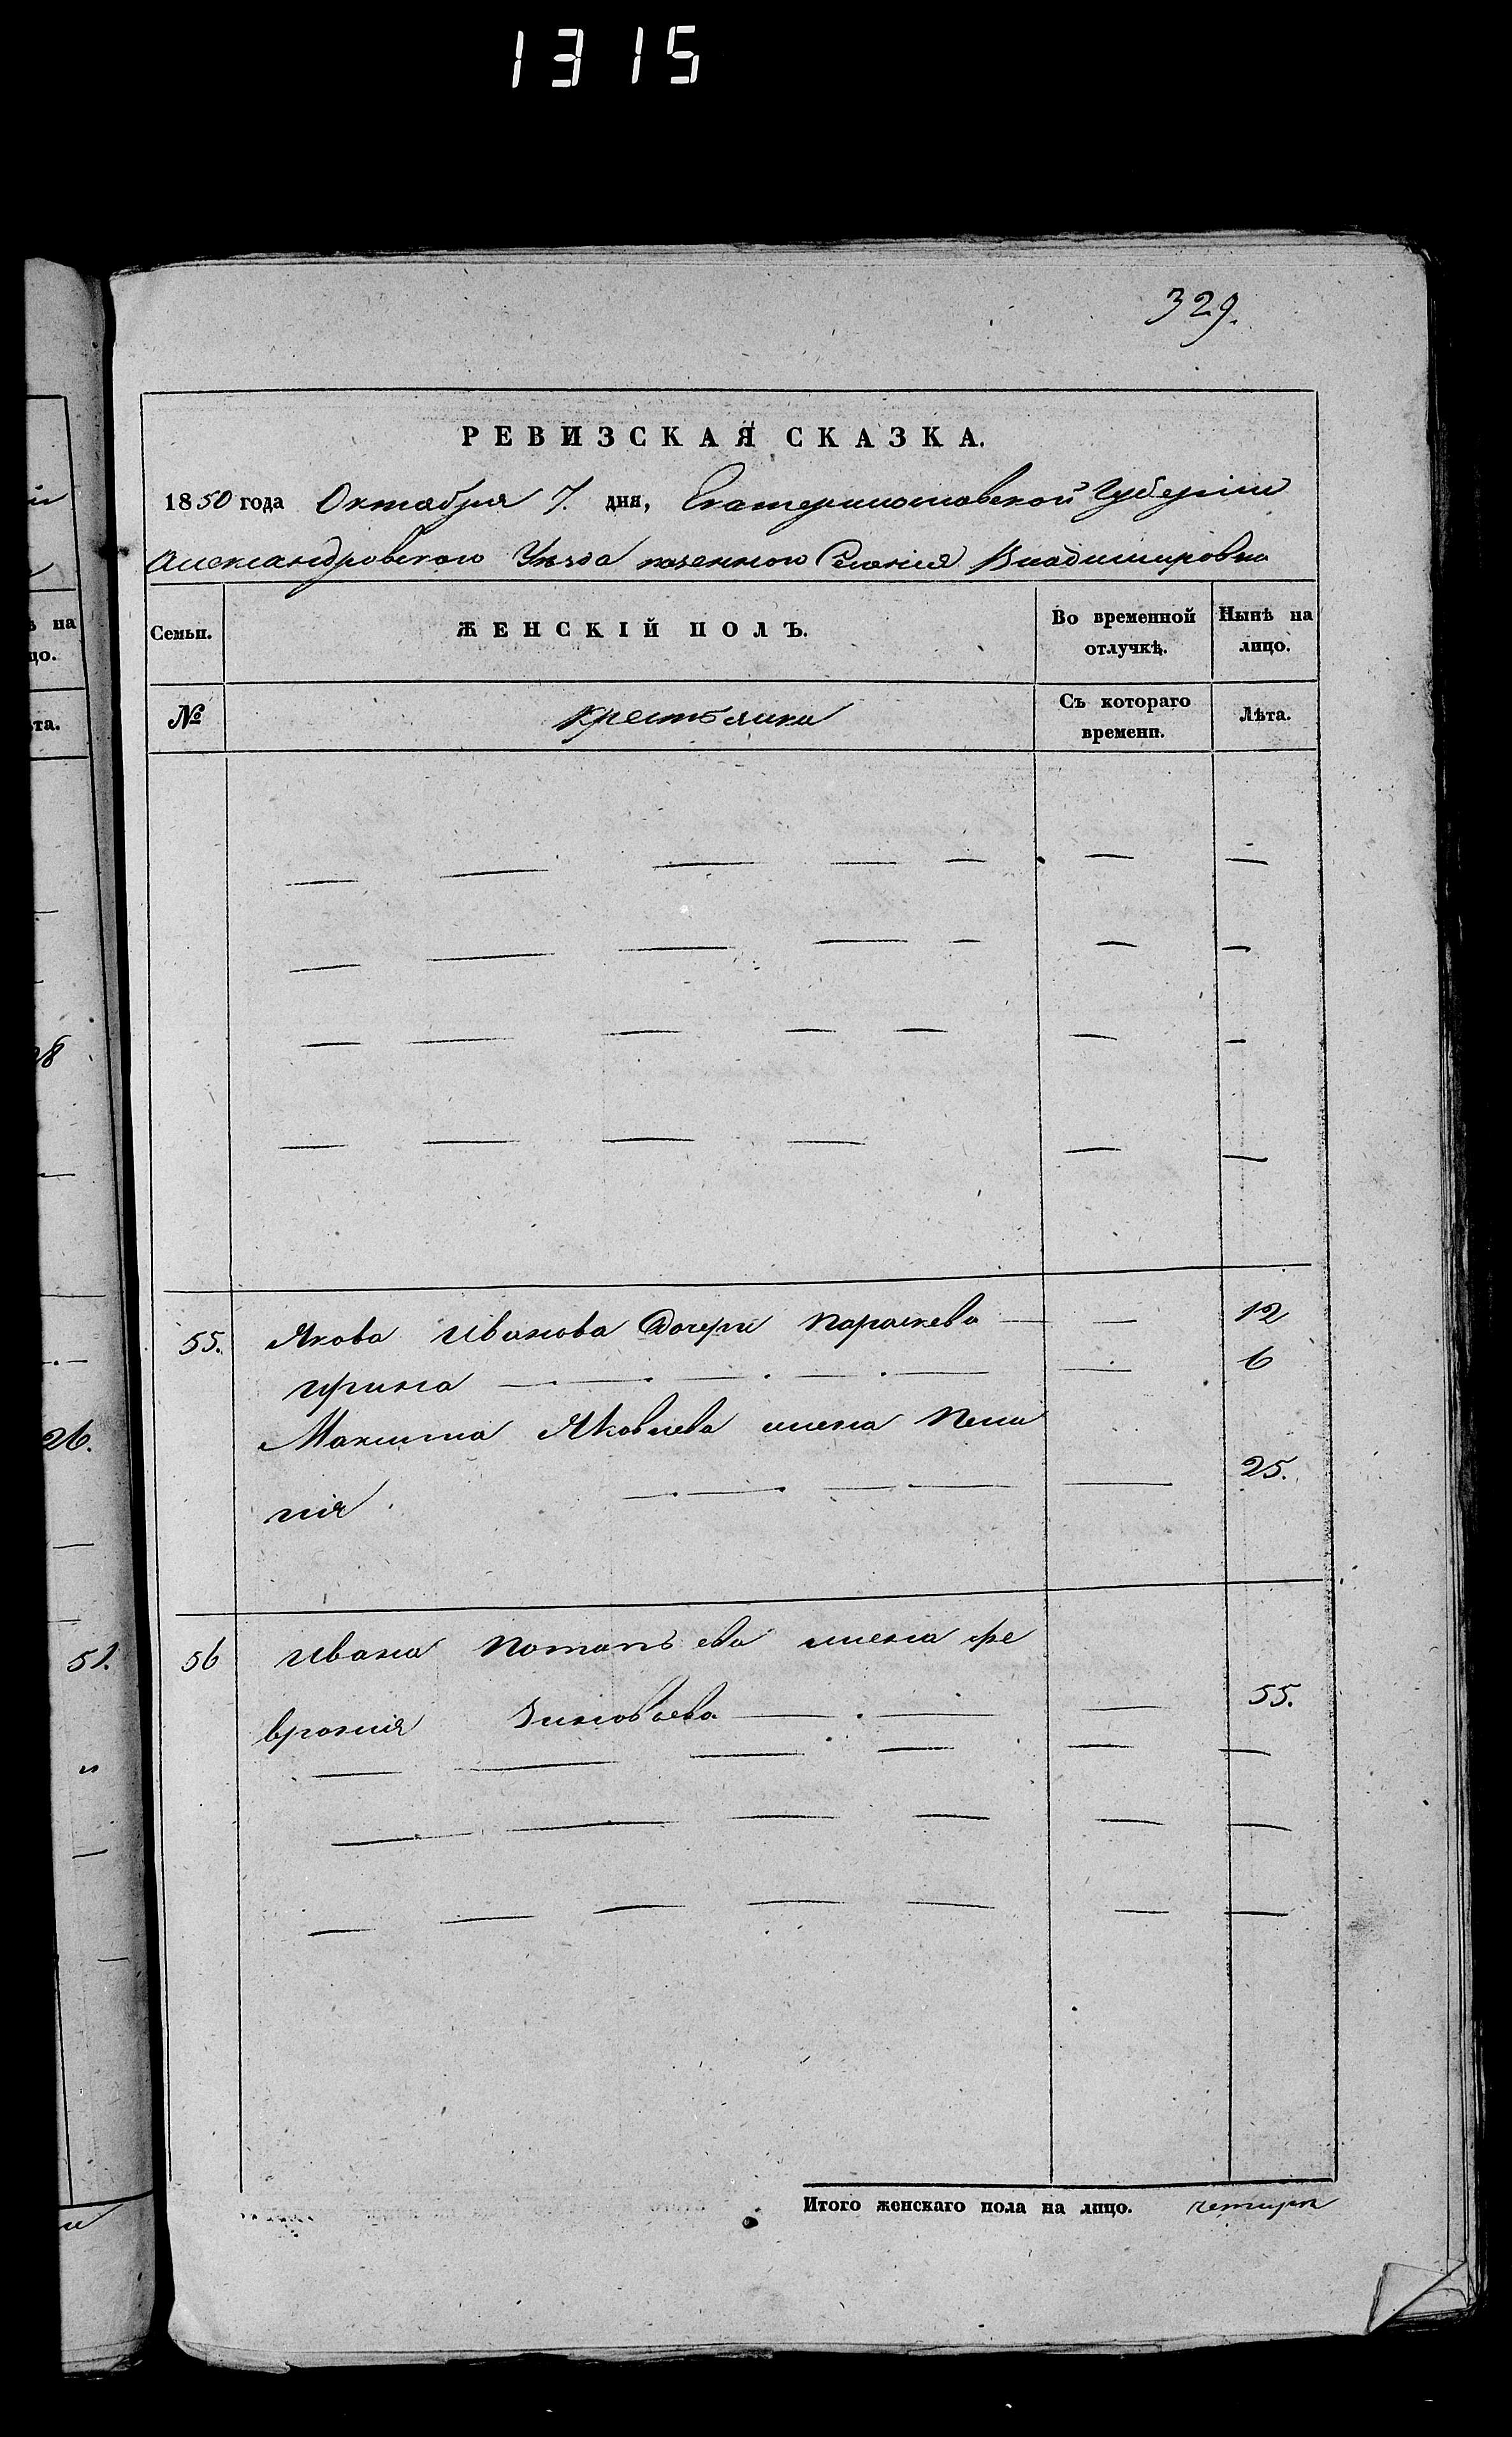 1315
329.
РЕВИЗСКАЯ СКАЗКА.
1850 года Октября 7. дня, Екатеринославской Губерніи
Александровского Уѣзда казенного Селенія Владимировка
Семьи. ЖЕНСКІЙ ПОЛЪ. Во временной отлучкѣ. Нынѣ на лицо.
№ Крестьянки Съ котораго времени. Лѣта.
55. Якова Иванова Дочери Параскева — — 12
Ирина — — 6
Максима Яковлева жена Пела
гія — — 25.
56 Ивана Потапьева жена Фе
вронія Зиновьева — — 55.
Итого женскаго пола на лицо. четыре
ѣ на
цо.
ѣта.
28
26.
51.